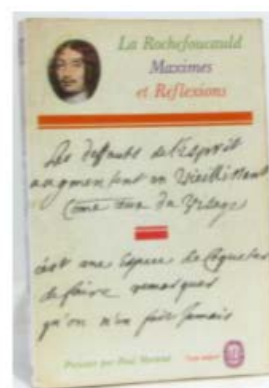 La Rochefoucauld
Maximes
et Reflexions
Les deffauts de l'esprit
augmentent en Vieillissant
Come ceux du Visage
c'est une Espece de Coqueterie
de faire remarquer
qu'on n'en fait Jamais
Préface par Paul Morand